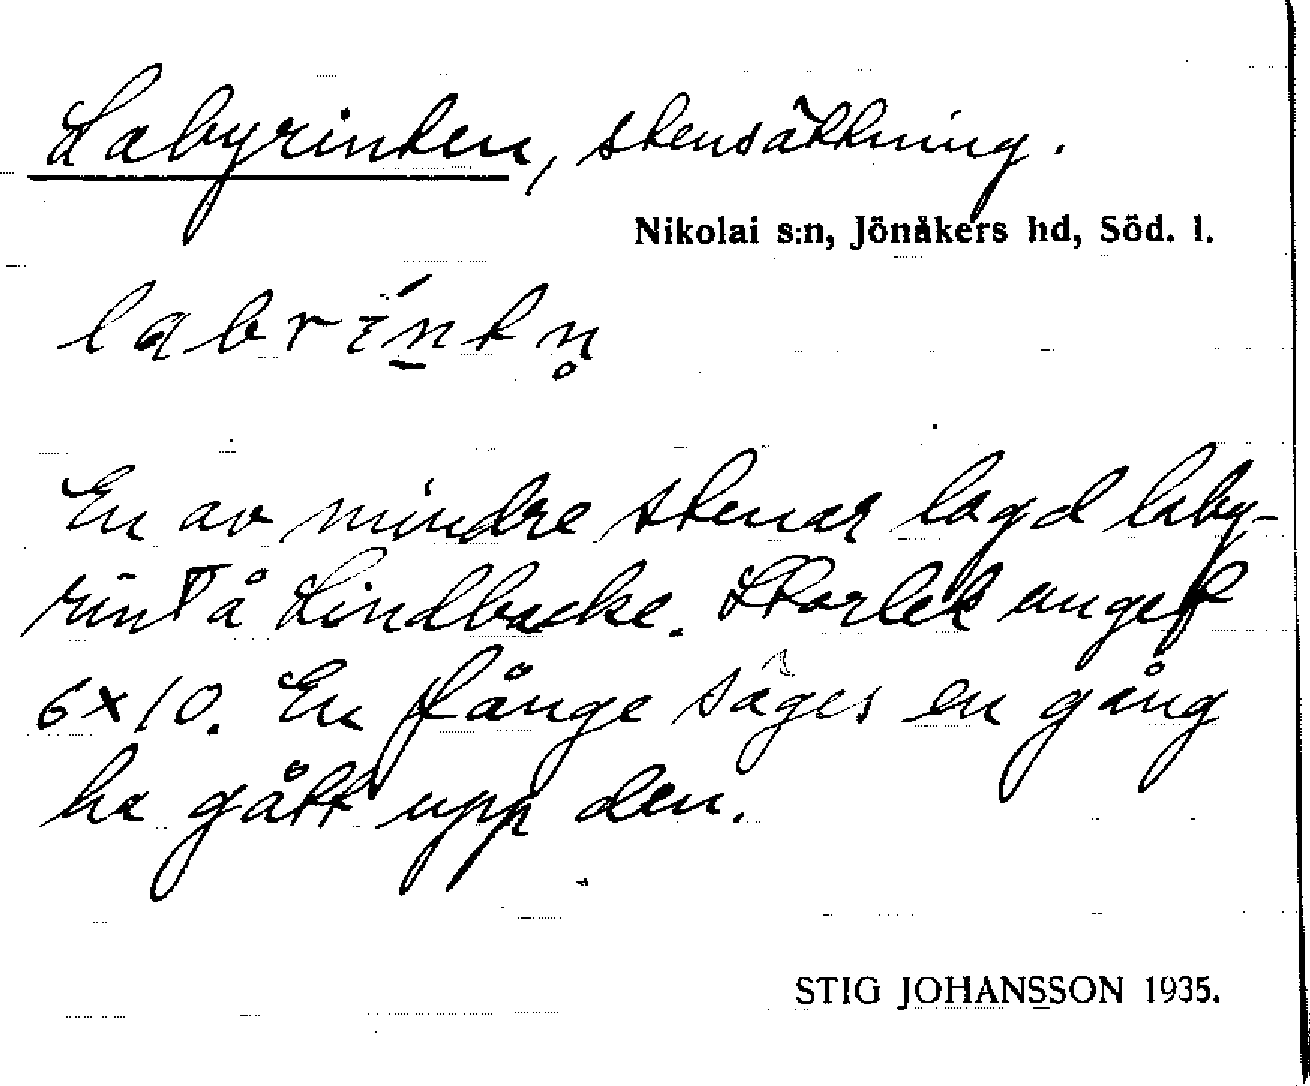 Labyrinten, stensättning.
Nikolai s:n, Jönåkers hd, Söd. l.
labríntn̥
En av mindre stenar lagd laby-
rint å Lindbacke. Storlek anges
6×10. En fånge säges en gång
ha gått upp den.
STIG JOHANSSON 1935.